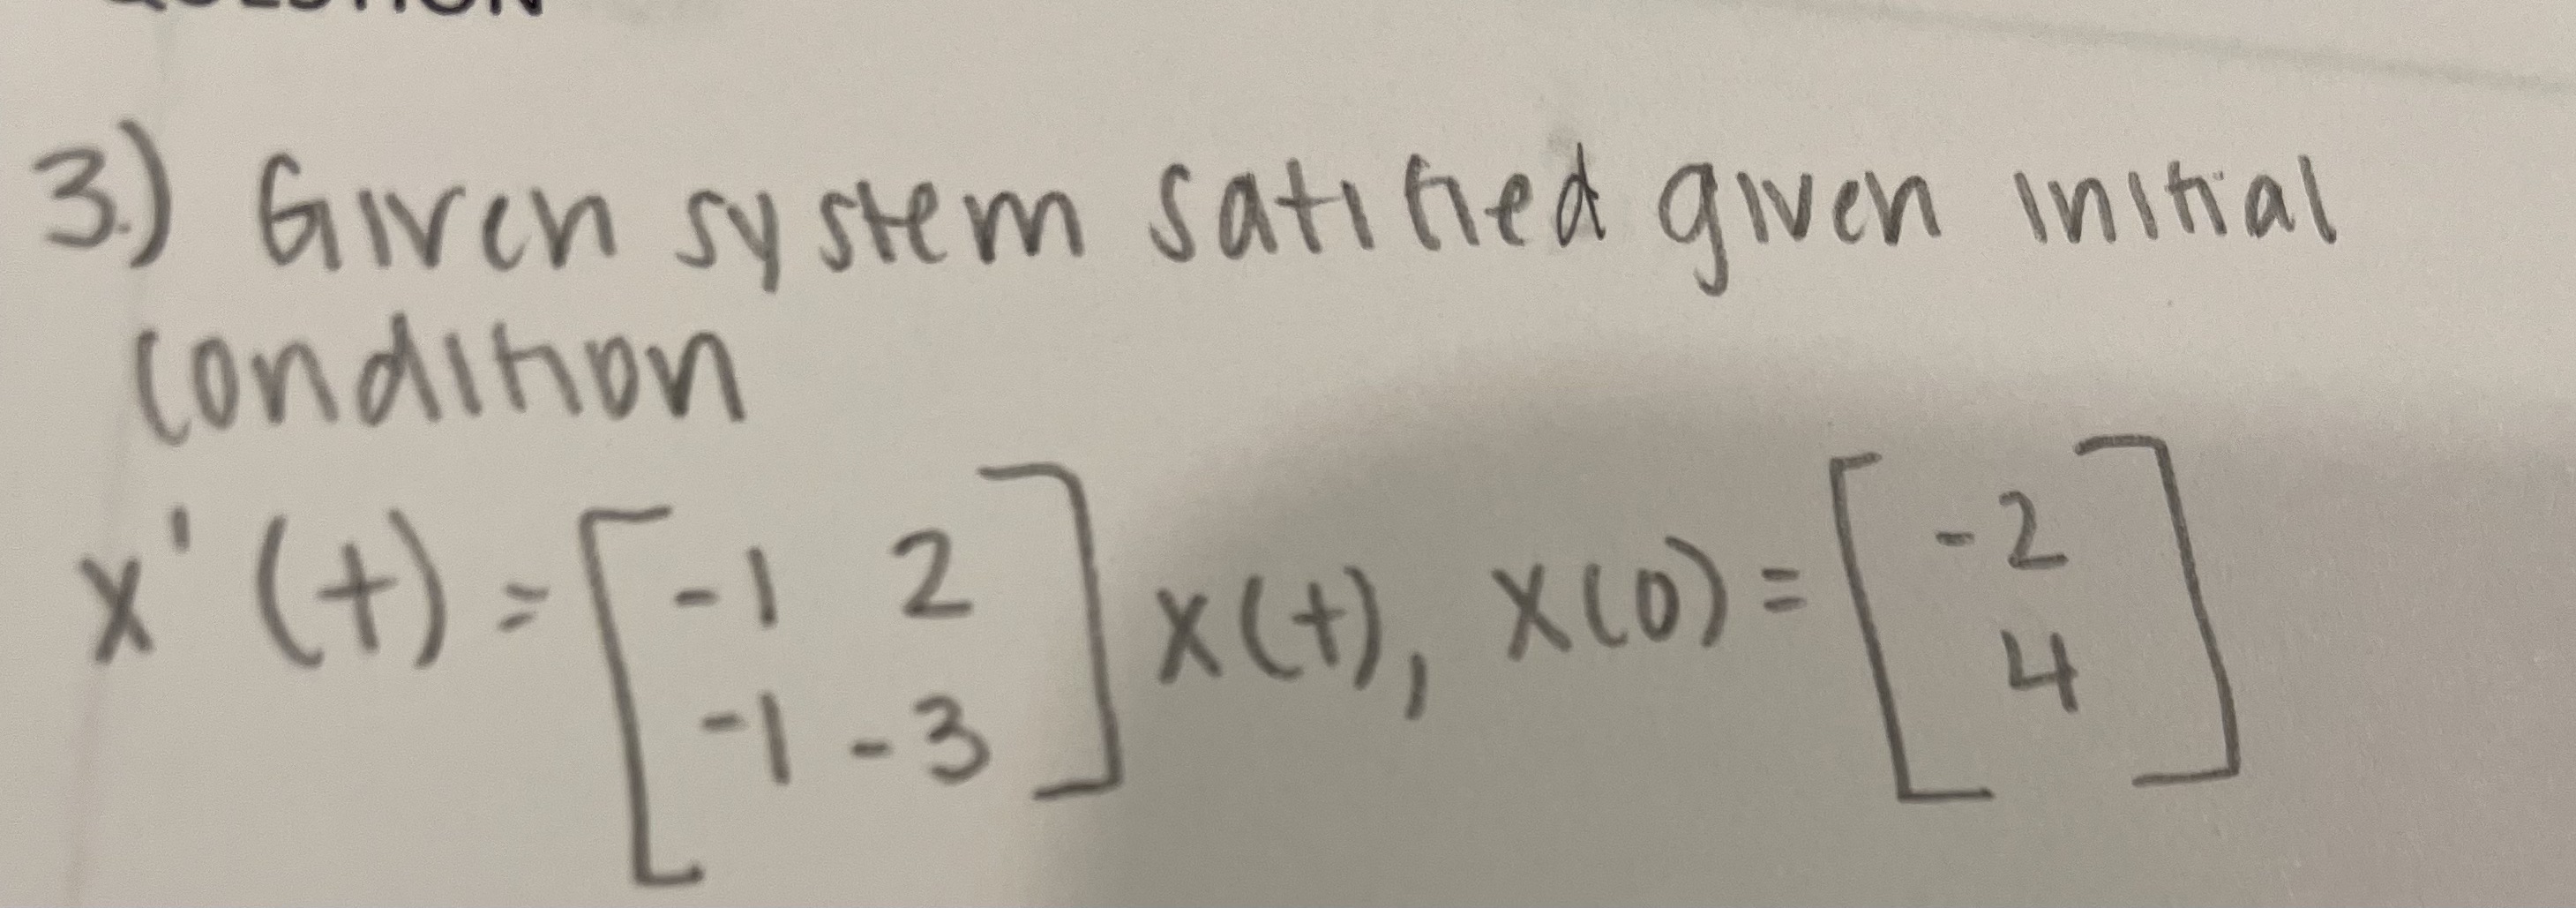 QUESTION
3.) Given system satified given initial
condition
x'(t) = [-1 2
-1 -3] x(t), x(0) = [-2
4]